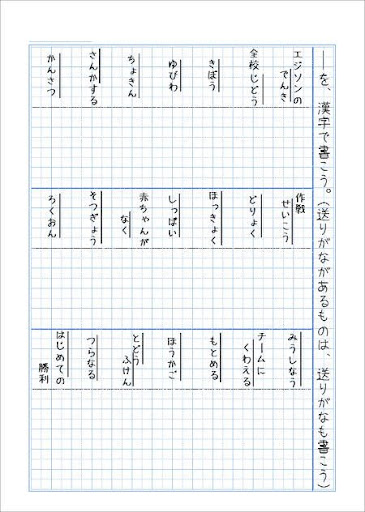 ―を、漢字で書こう。（送りがながあるものは、送りがなも書こう）
エジソンのでんき
全校じどう
きぼう
ゆびわ
ちょきん
さんかする
かんさつ
作戦せいこう
どりょく
ほっきょく
しっぱい
赤ちゃんがなく
そつぎょう
ろくおん
みうしなう
チームにくわえる
もとめる
ほうかご
とどうふけん
つらなる
はじめての勝利